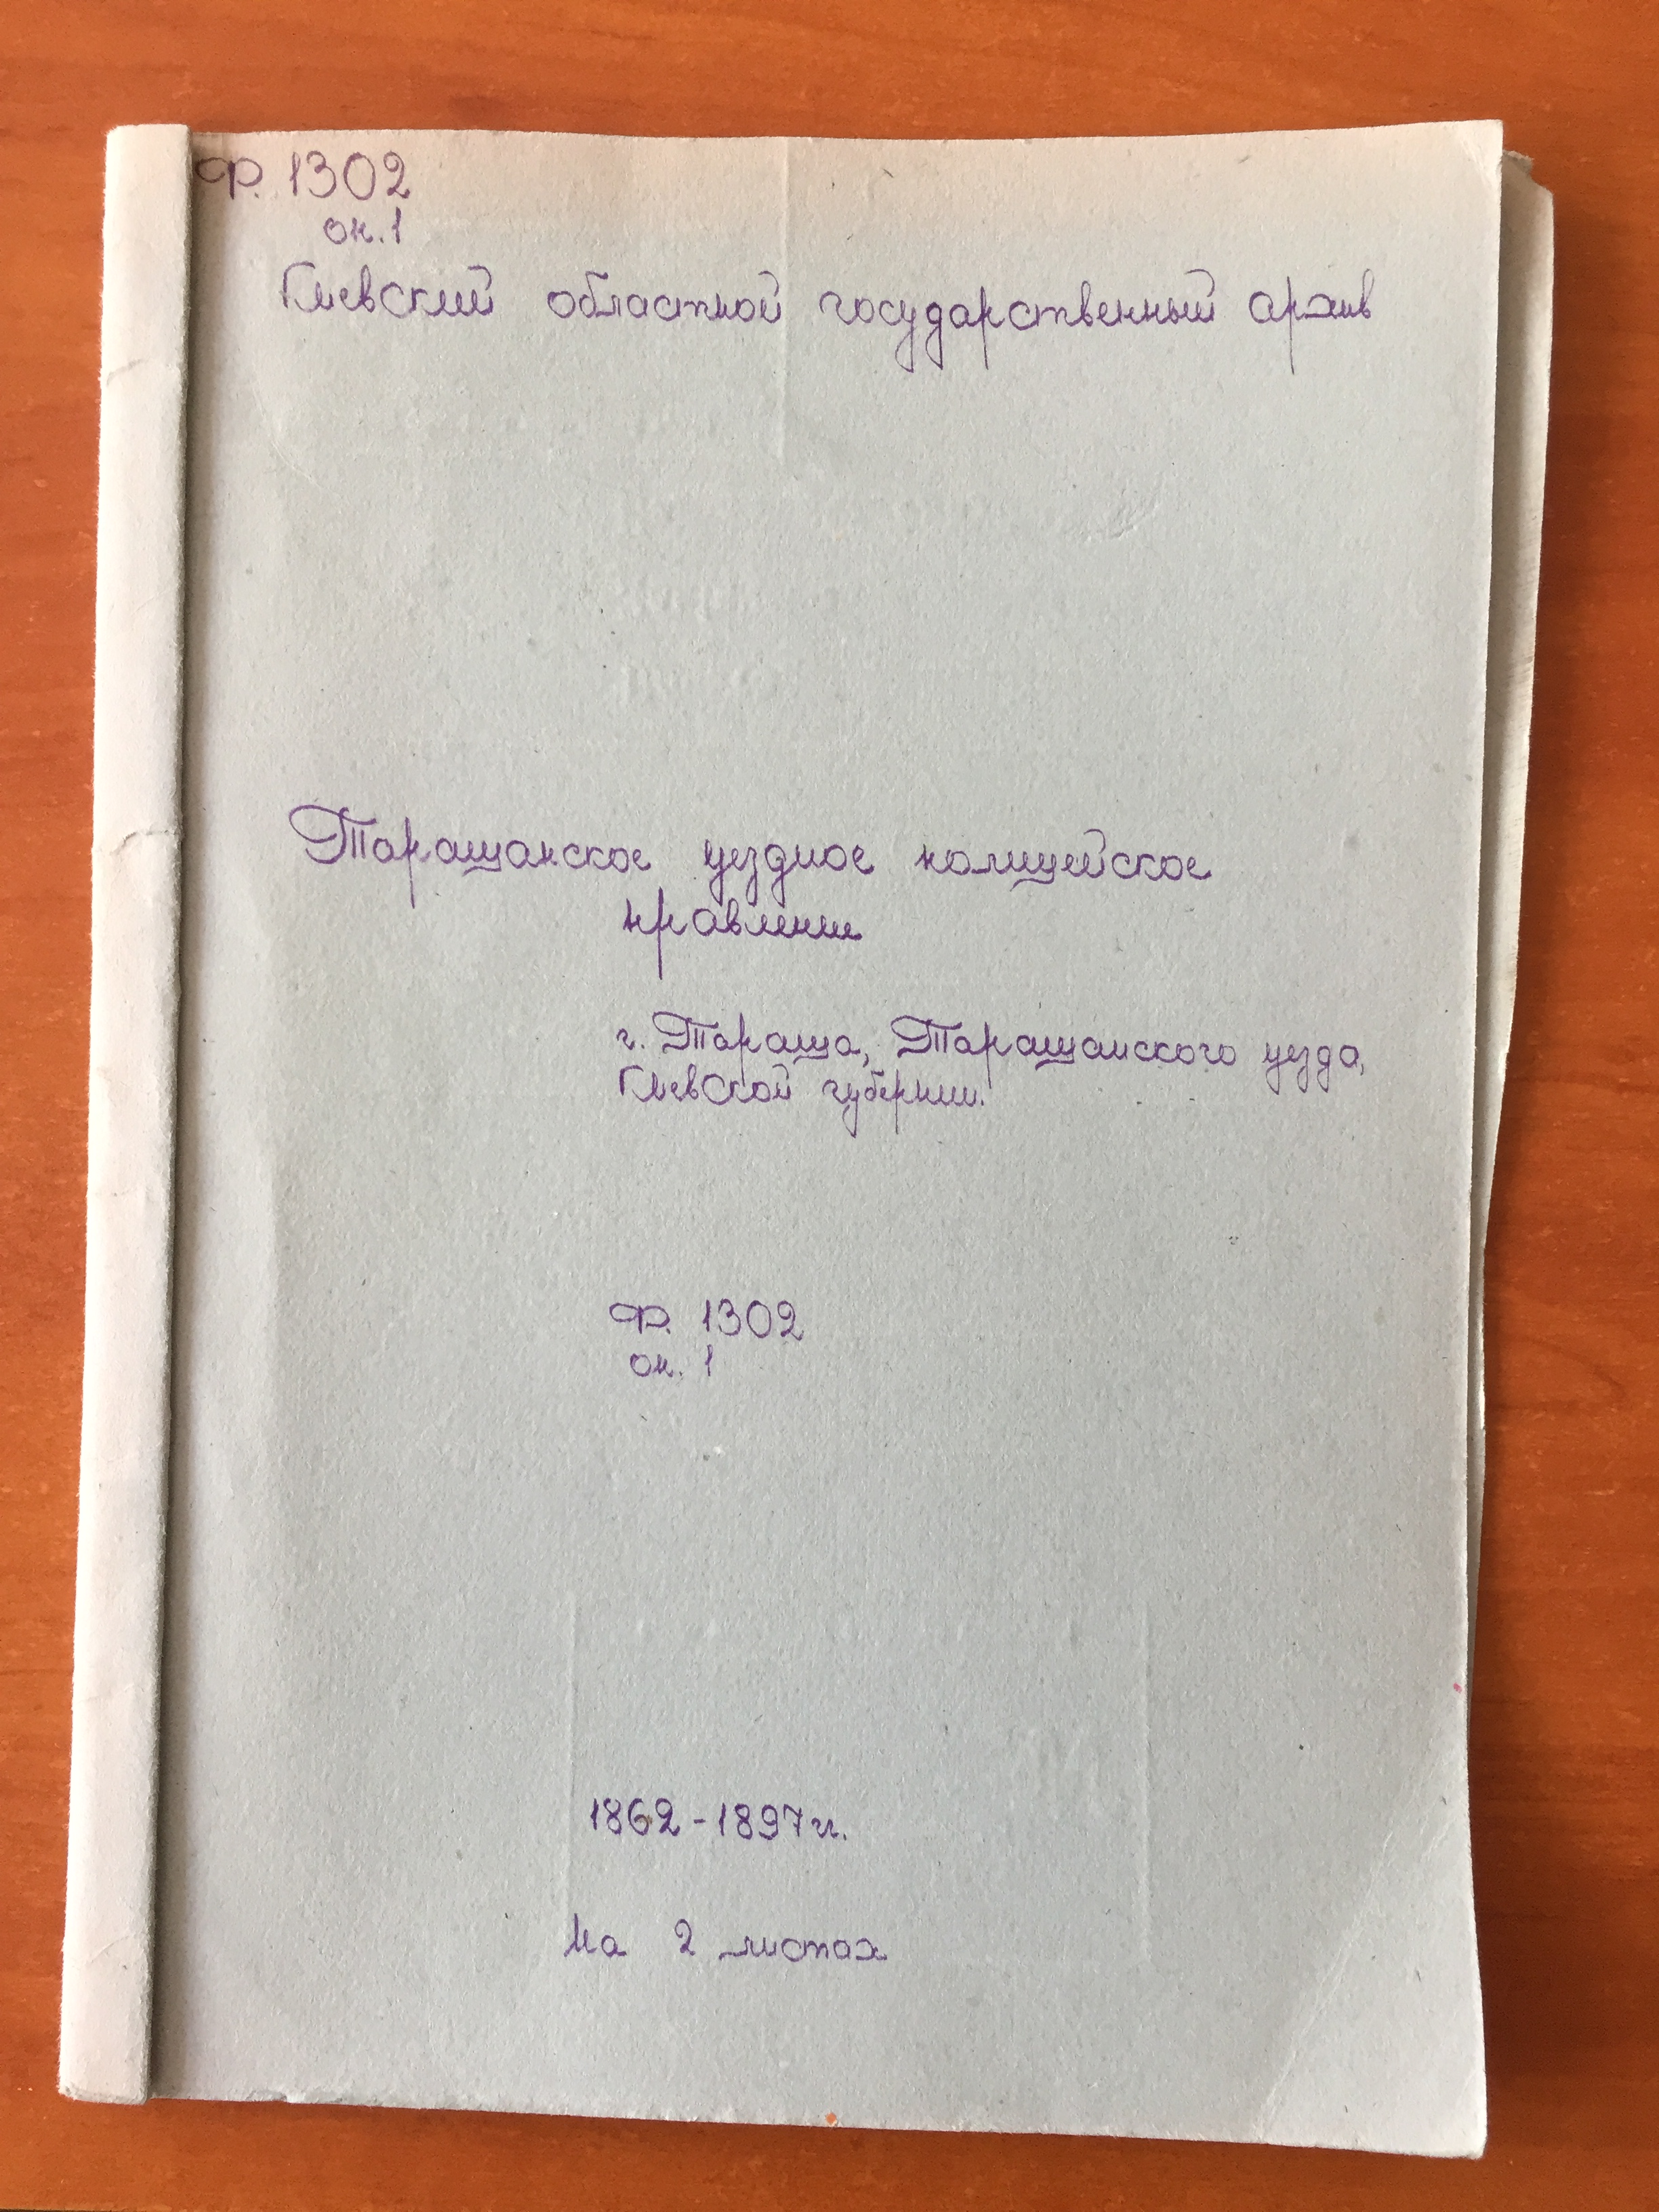 Ф. 1302
оп. 1
Киевский областной государственный архив
Таращанское уездное полицейское
правление
г. Тараща, Таращанского уезда,
Киевской губернии.
Ф. 1302
оп. 1
1862-1897 гг.
На 2 листах